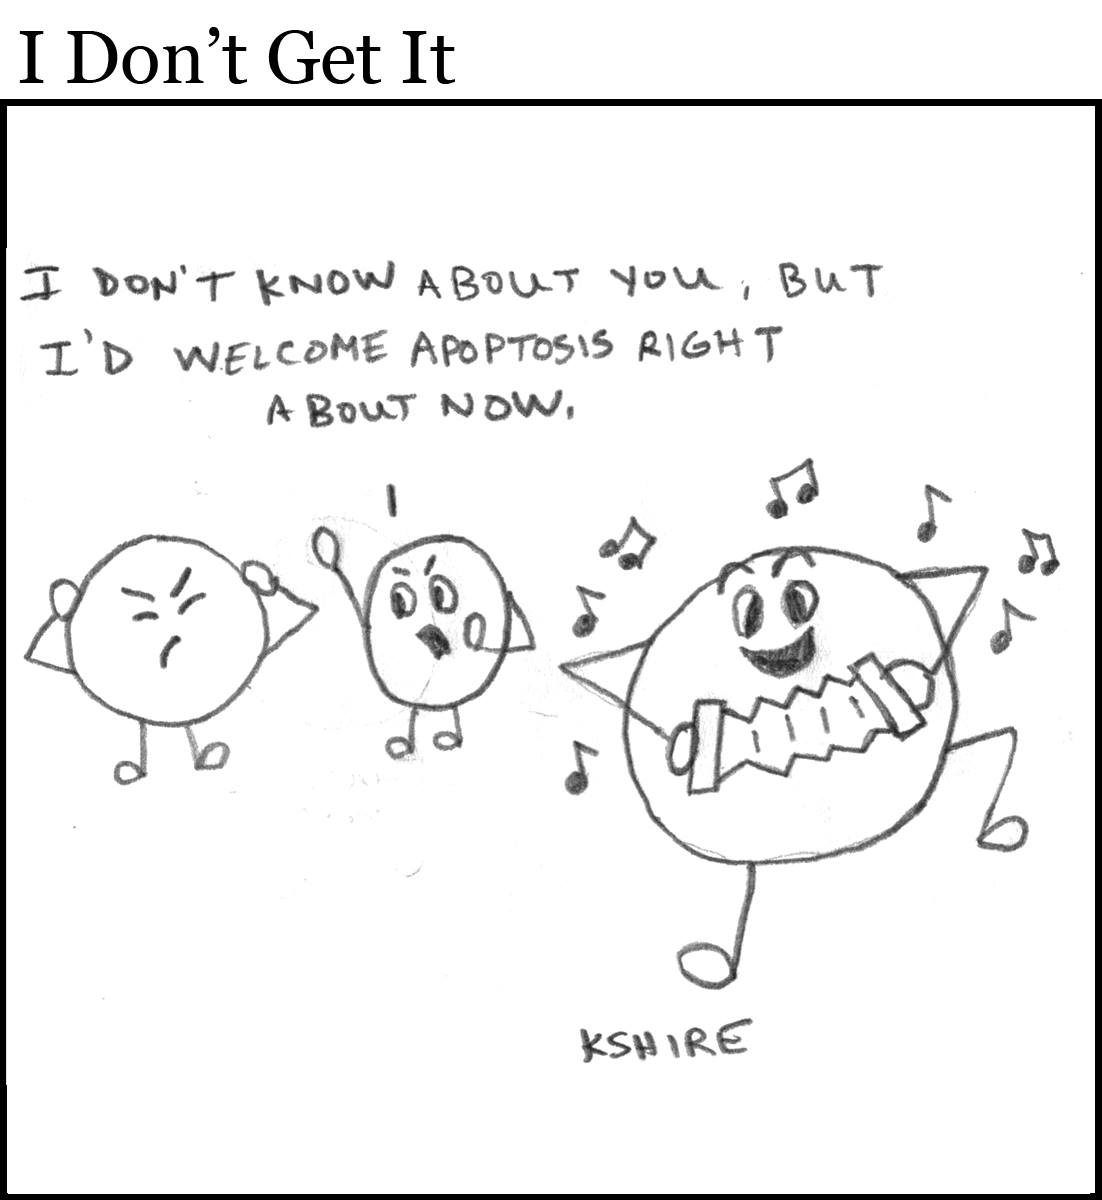 I Don’t Get It
I DON'T KNOW ABOUT YOU, BUT
I'D WELCOME APOPTOSIS RIGHT
ABOUT NOW.
KSHIRE